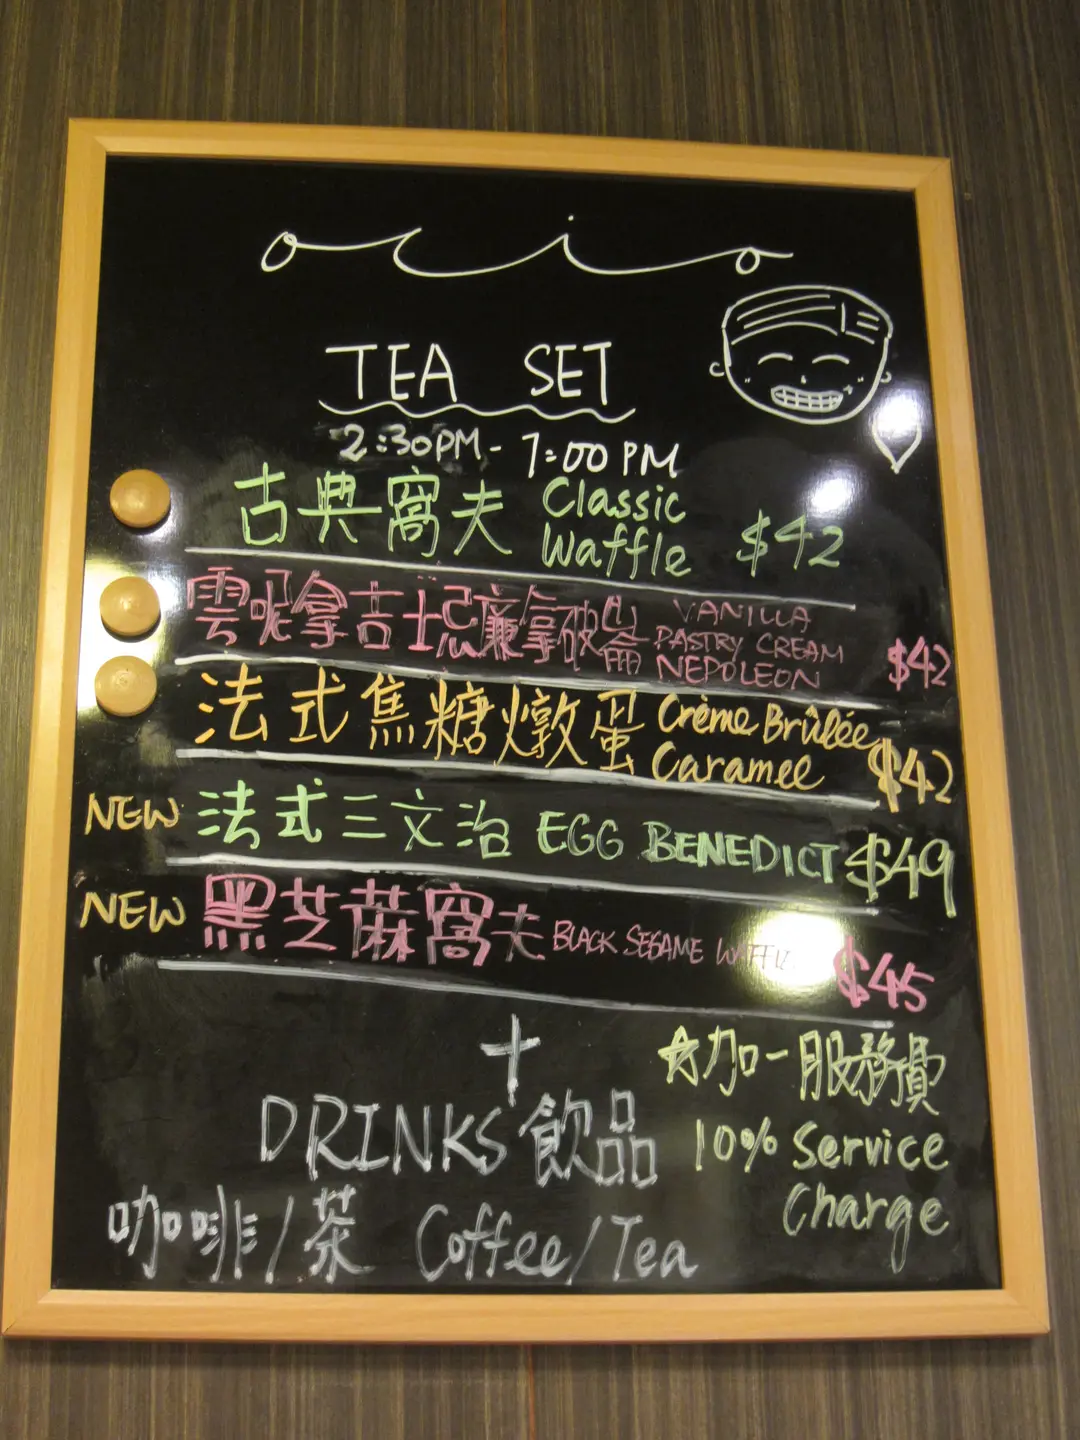 ocio
TEA SET
2:30PM - 7:00PM
古典窩夫 Classic Waffle $42
雲呢拿吉士忌廉拿破崙 VANILLA PASTRY CREAM NEPOLEON $42
法式焦糖燉蛋 Crème Brûlée Caramel $42
NEW 法式三文治 EGG BENEDICT $49
NEW 黑芝蔴窩夫 BLACK SESAME WAFFLE $45
+
☆加一服務費
10% Service Charge
DRINKS 飲品
咖啡/茶 Coffee/Tea